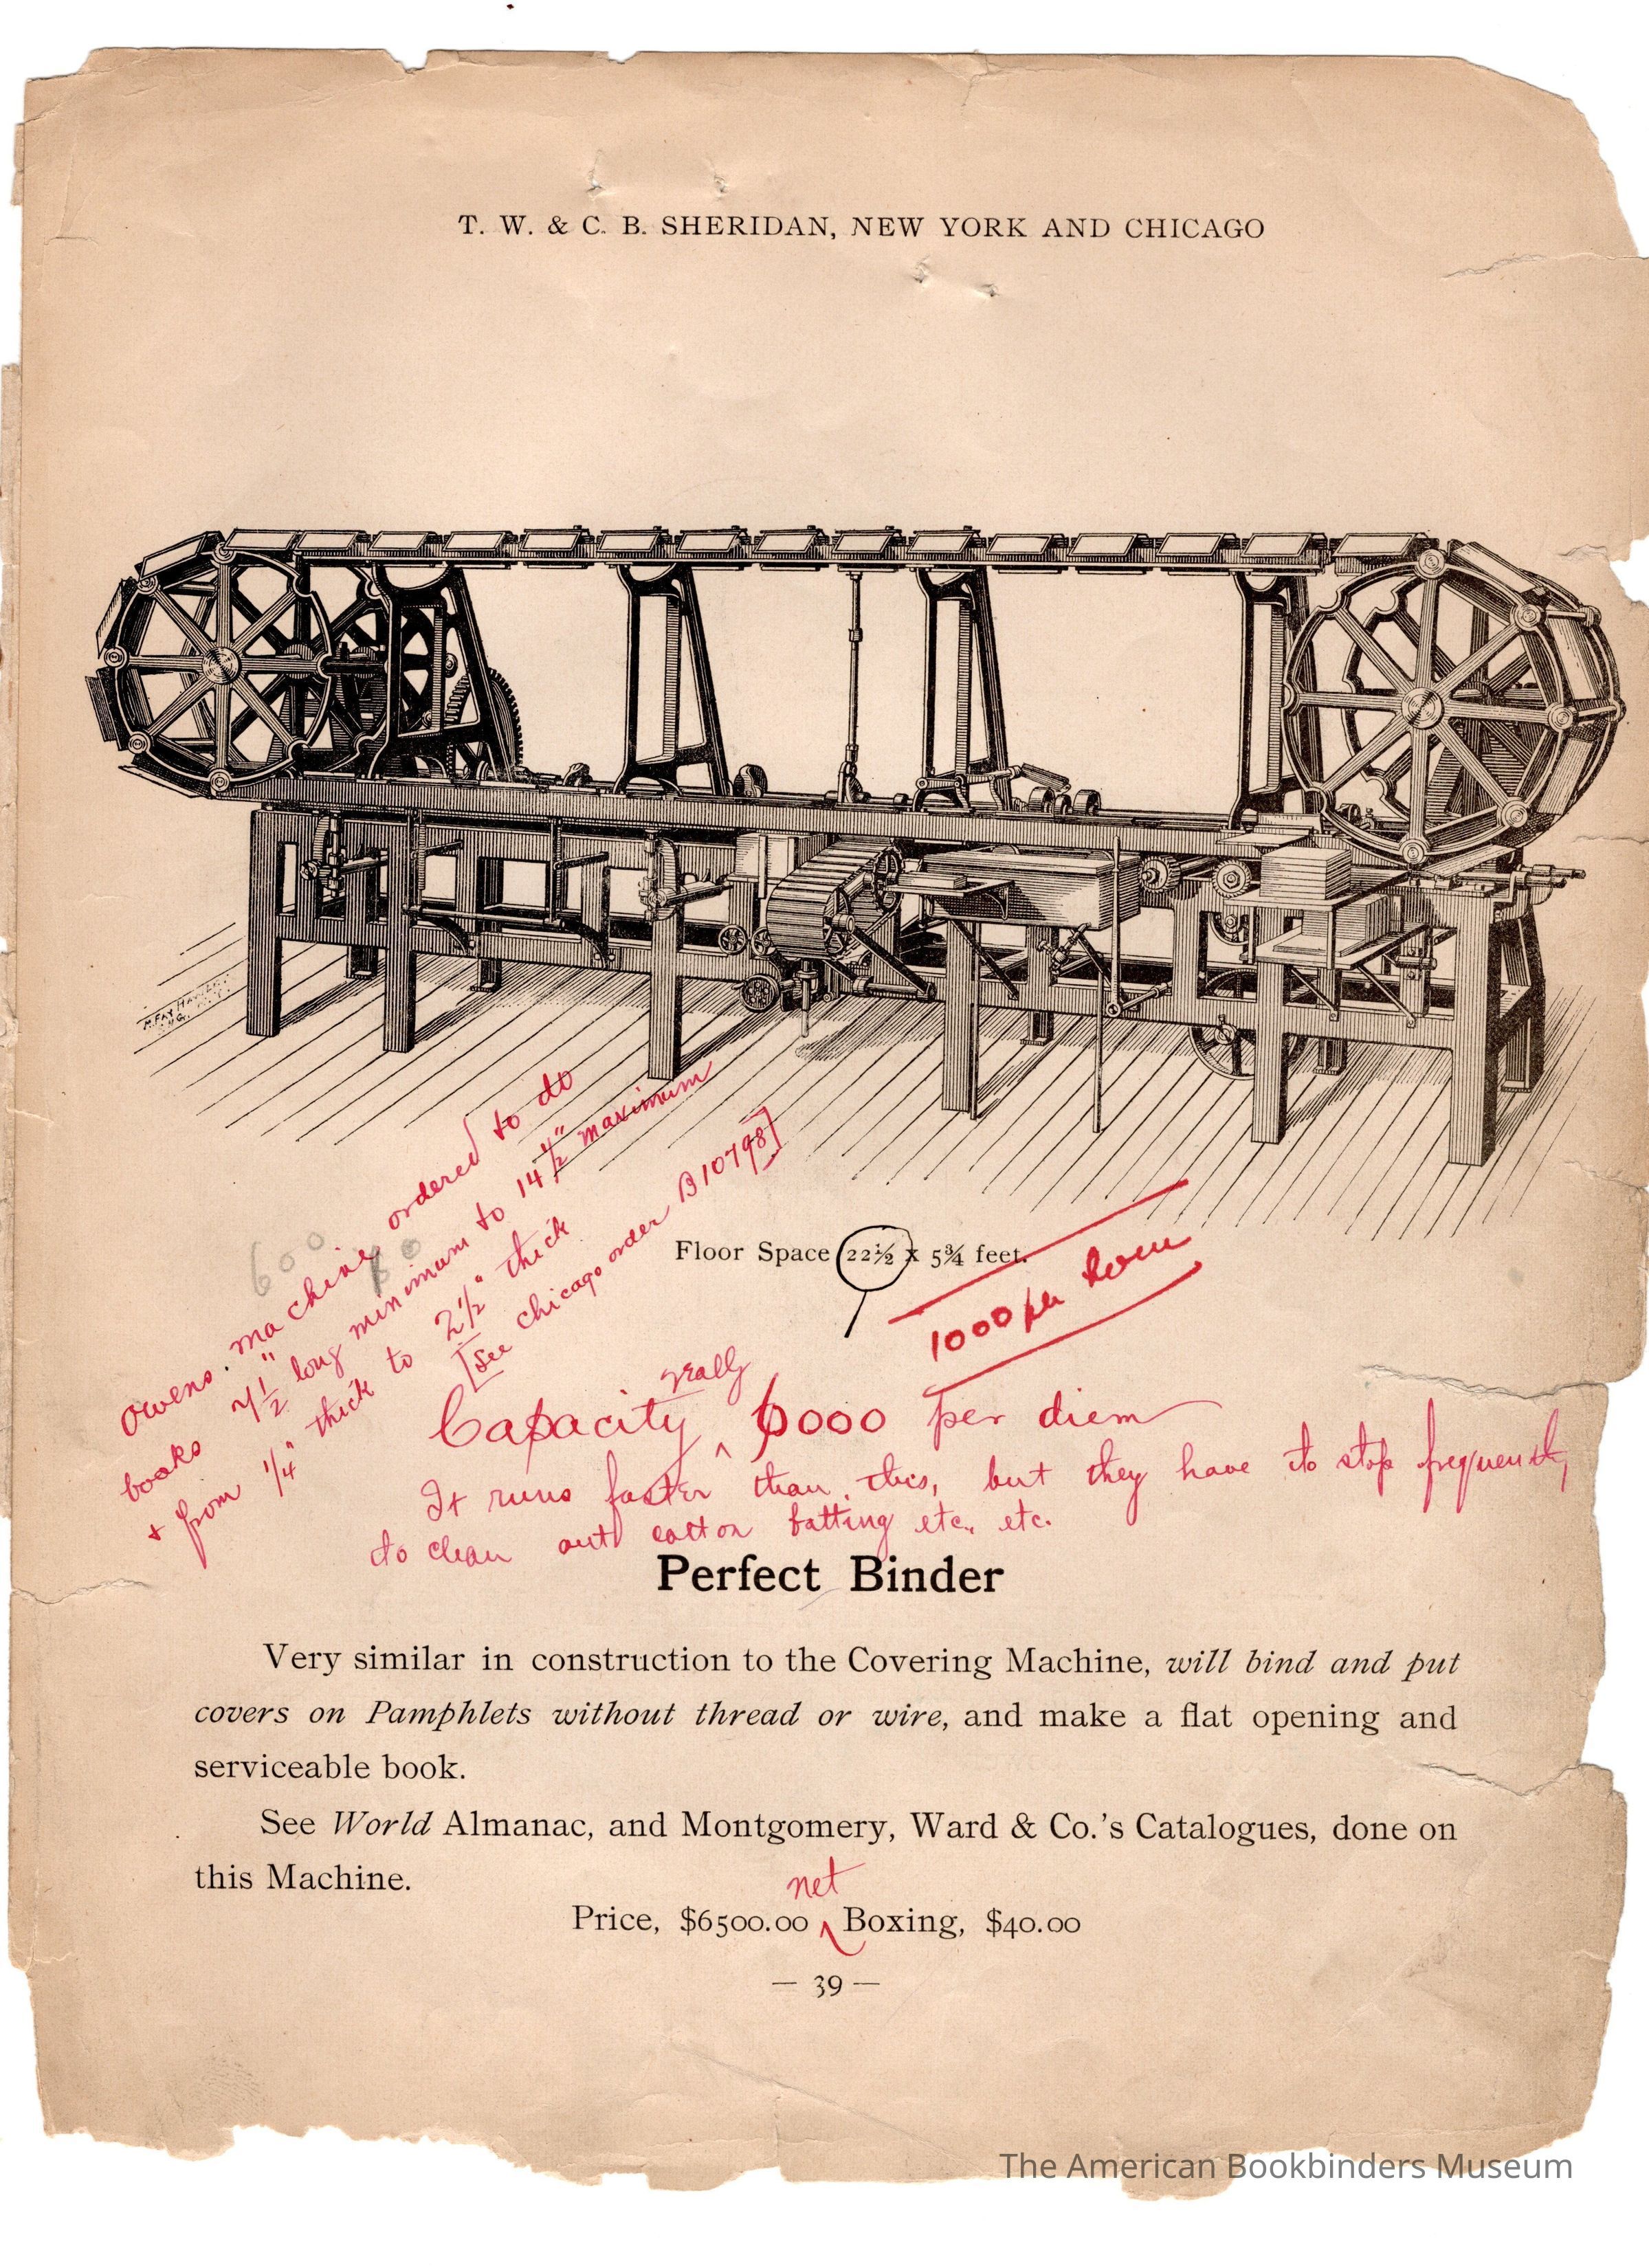 T. W. & C. B. SHERIDAN, NEW YORK AND CHICAGO
Owens. machine ordered to do
books 7 1/2" long minimum to 14 1/2" maximum
+ from 1/4" thick to 2 1/2" thick
[See Chicago order B10798]
600
Floor Space 22½ x 5¾ feet.
1000 per hour
Capacity really 6000 per diem
It runs faster than this, but they have to stop frequently
to clean out cotton batting etc., etc.
Perfect Binder
Very similar in construction to the Covering Machine, will bind and put
covers on Pamphlets without thread or wire, and make a flat opening and
serviceable book.
See World Almanac, and Montgomery, Ward & Co.'s Catalogues, done on
this Machine.
Price, $6500.00 net Boxing, $40.00
— 39 —
The American Bookbinders Museum